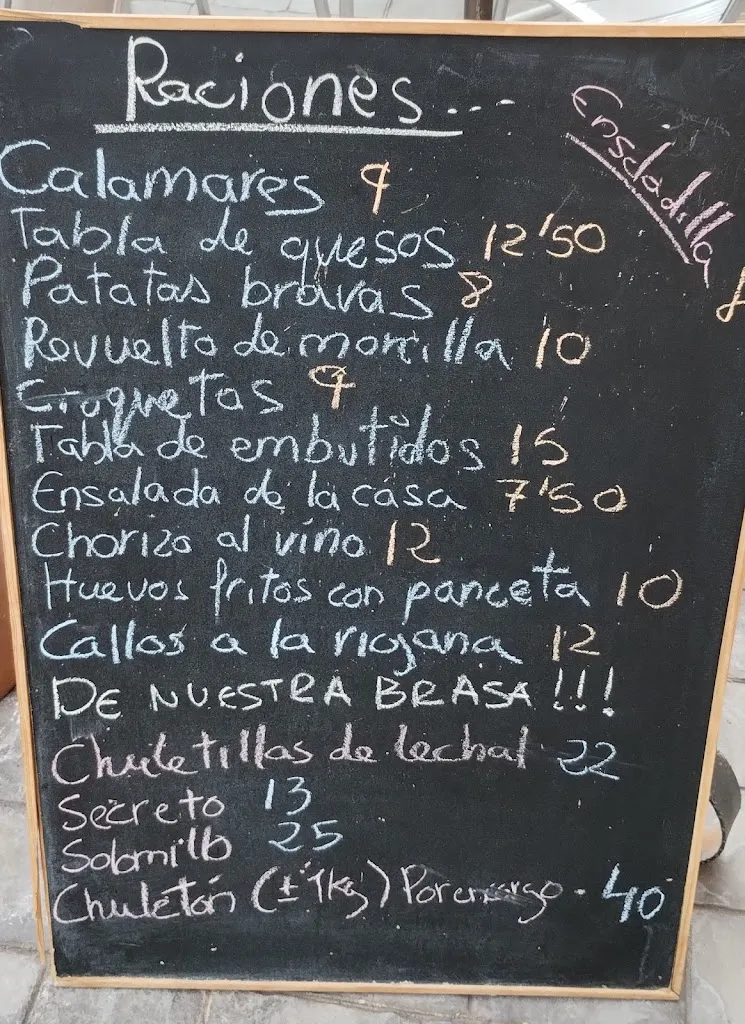 Raciones...
Ensaladilla
Calamares 9
Tabla de quesos 12'50
Patatas bravas 8
Revuelto de morcilla 10
Croquetas 9
Tabla de embutidos 15
Ensalada de la casa 7'50
Chorizo al vino 12
Huevos fritos con panceta 10
Callos a la riojana 12
DE NUESTRA BRASA!!!
Chuletillas de lechal 22
Secreto 13
Solomillo 25
Chuletón (± 1kg) Por encargo - 40